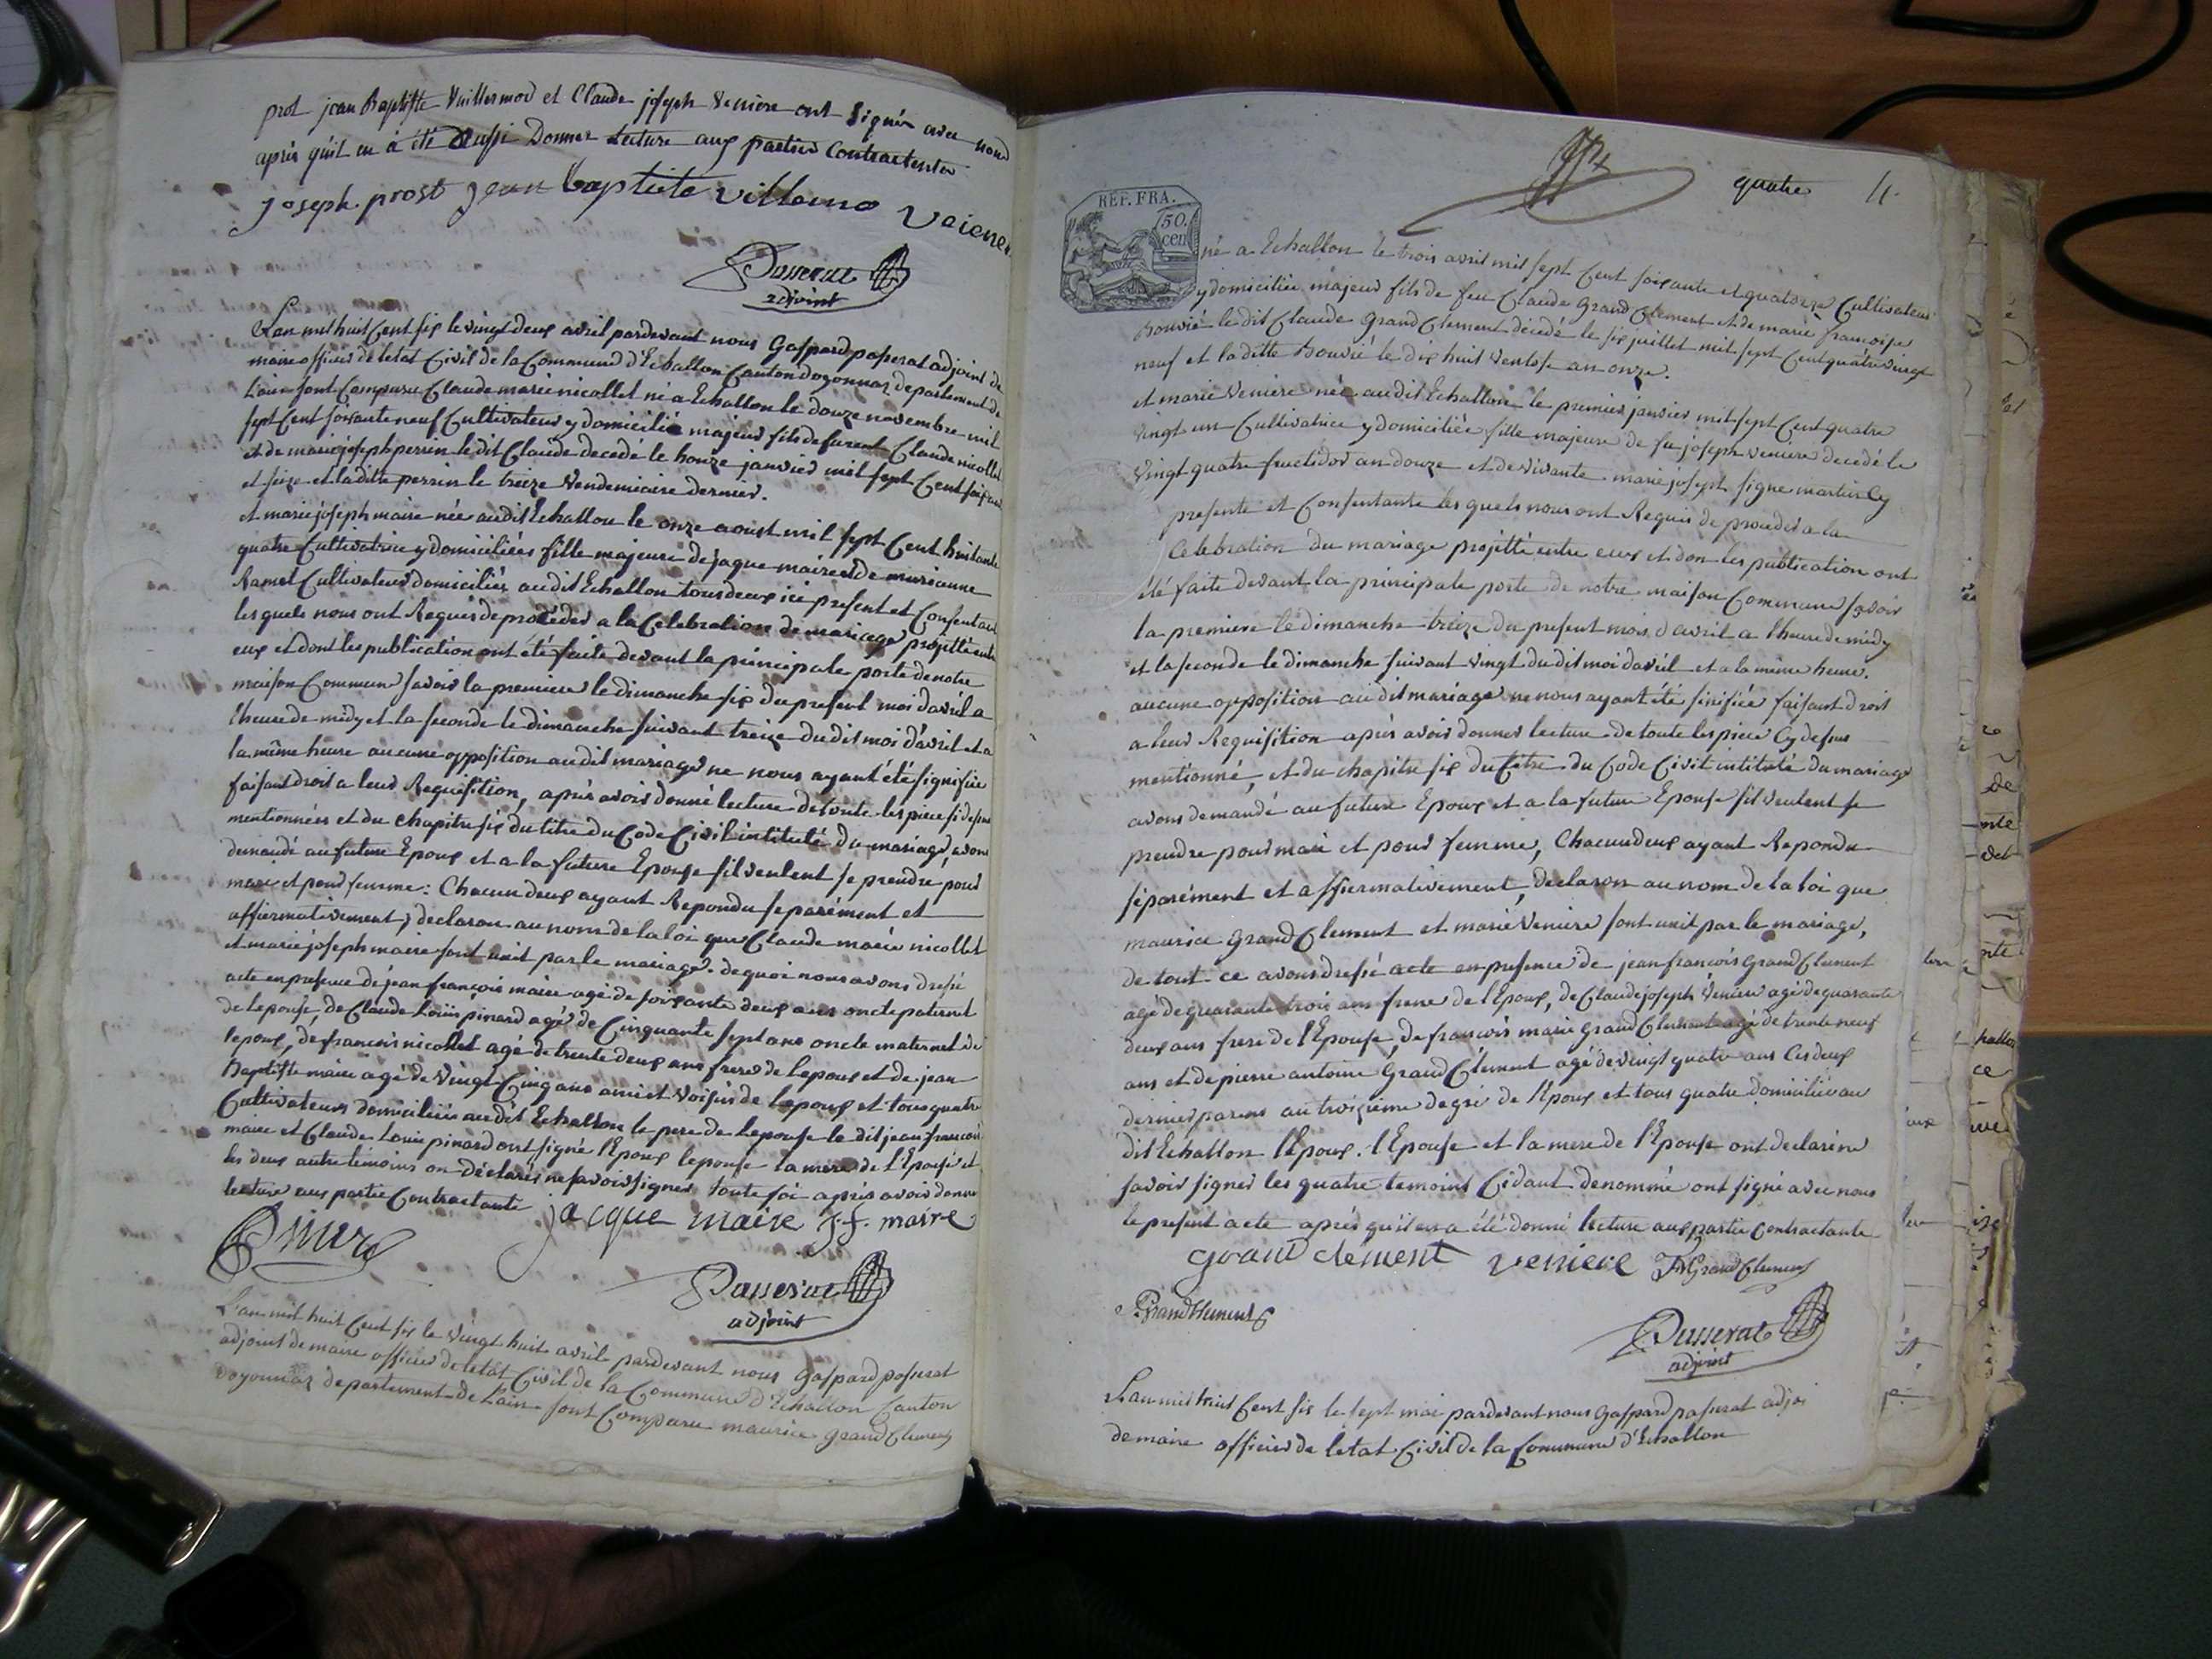 prost jean Baptiste Vuillermoz et Claude joseph Veniere ont Signés avec nous
après qu'il en à été Aussi Donner Lecture aux parties Contractentes
joseph prost jean baptiste villerno Veieney
Passerat
adjoint
Lan mil huit Cent six le vingt deux avril pardevant nous Gaspard passerat adjoint de
maire officier de letat Civil de la Commune d'Echallon Canton doyonnaz departement de
Lain sont Comparu Claude marie nicollet né a Echallon le douze novembre mil
sept Cent soixante neuf Cultivateur y domicilié majeur fils de furent Claude nicollet
et de marie joseph perrin le dit Claude decedé le honze janvier mil sept Cent soixante
et seize et la ditte perrin le treize Vendemiaire dernier.
et marie joseph maire née audit Echallon le onze aoust mil sept Cent huitante
quatre Cultivatrice y domiciliées fille majeure de jaque maire et de marianne
Ramel Cultivateurs domiciliés audit Echallon tous deux ici present et Consentant
les quels nous ont Requis de procéder a la Celebration de mariage projetté entre
eux et dont les publication ont été faite devant la principale porte de notre
maison Commune savoir la premiere le dimanche six du present moi d'avril a
l'heure de midy et la seconde le dimanche suivant treize du dit moi d'avril et a
la même heure aucune opposition audit mariage ne nous ayant été signifiée
faisant droit a leur Requisition, après avoir donné lecture de toute les piece si dessus
mentionnées et du chapitre six du titre du Code Civil intitulé du mariage, avons
demandé au futur Epoux et a la future Epouse sil veulent se prendre pour
mari et pour femme: Chacun deux ayant Repondu separément et
affirmativement, declaron au nom de la loi que Claude marie nicollet
et marie joseph maire sont unit par le mariage. de quoi nous avons dressé
acte en presence de jean françois maire agé de soixante deux ans oncle paternel
de lepouse, de Claude Louis pinard agé de Cinquante sept ans oncle maternel de
lepoux, de francois nicollet agé de trente deux ans frere de lepoux et de jean
Baptiste maire agé de Vingt Cinq ans ami et Voisin de lepoux et tous quatre
Cultivateurs domiciliés audit Echallon le pere de lepouse le dit jean francois
maire et Claude Louis pinard ont signé l'Epoux lepouse la mere de l'Epouse et
les deux autre temoins on déclarés ne savoir signer toute foi après avoir donné
lecture aux partie Contractante
jacque maire j.f. maire
Passerat
adjoint
L'an mil huit Cent six le vingt huit avril pardevant nous Gaspard passerat
adjoint de maire officier de letat Civil de la Commune d'Echallon Canton
doyonnaz departement de Lain sont Comparu maurice grand Clement
quatre 4.
REP. FRA.
50.
cen
né a Echallon le trois avril mil sept Cent soixante et quatorze Cultivateur
y domicilié majeur fils de feu Claude grand Clement et de marie françoise
Bouvié le dit Claude Grand Clement décedé le six juillet mil sept Cent quatre vingt
neuf et la ditte Bouvié le dix huit Ventose an onze.
et marie Veniere née audit Echallon le premier janvier mil sept Cent quatre
Vingt un Cultivatrice y domiciliée fille majeure de fu joseph veniere decedé le
Vingt quatre fructidor an douze et de vivante marie joseph signe martin Cy
presente et Consentante les quels nous ont Requis de proceder a la
Celebration du mariage projetté entre eux et don les publication ont
été faite devant la principale porte de notre maison Commune savoir
la premiere le dimanche treize du present mois d'avril a l'heure de midy
et la seconde le dimanche suivant vingt du dit moi d'avril et a la même heure.
aucune opposition audit mariage ne nous ayant été sinifiée faisant droit
a leur Requisition après avoir donner lecture de toute les piece Cy dessus
mentionné, et du chapitre six du titre du Code Civil intitulé du mariage
avons demandé au future Epoux et a la future Epouse sil veulent se
prendre pour mari et pour femme, Chacun deux ayant Repondu
séparément et affirmativement, declaron au nom de la loi que
maurice grand Clement et marie Veniere sont unit par le mariage,
de tout ce avons dressé acte en presence de jean françois Grand Clement
agé de quarante trois ans frere de l'Epoux, de Claude joseph Veniere agé de quarante
deux ans frere de l'Epouse, de francois marie grand Clement agé de trente neuf
ans et de pierre antoine Grand Clément agé de vingt quatre ans Ces deux
dernier parens au troizième degré de l'Epoux et tous quatre domicilié au
dit Echallon l'Epoux. l'Epouse et la mere de l'Epouse ont declaré ne
savoir signer les quatre temoins Cidavant denommé ont signé avec nous
le present acte après qu'il en a été donné lecture aux partie Contractante
grand clément veniere FMGrandClement
PGrandClement
Passerat
adjoint
L'an mil huit Cent six le sept mai pardevant nous Gaspard passerat adjoi
de maire officier de letat Civil de la Commune d'Echallon